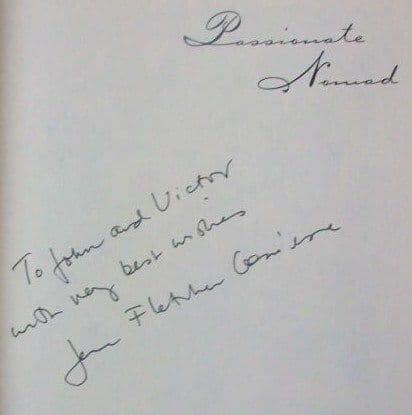 Passionate
Nomad
To John and Victor
with very best wishes
Jane Fletcher Geniesse